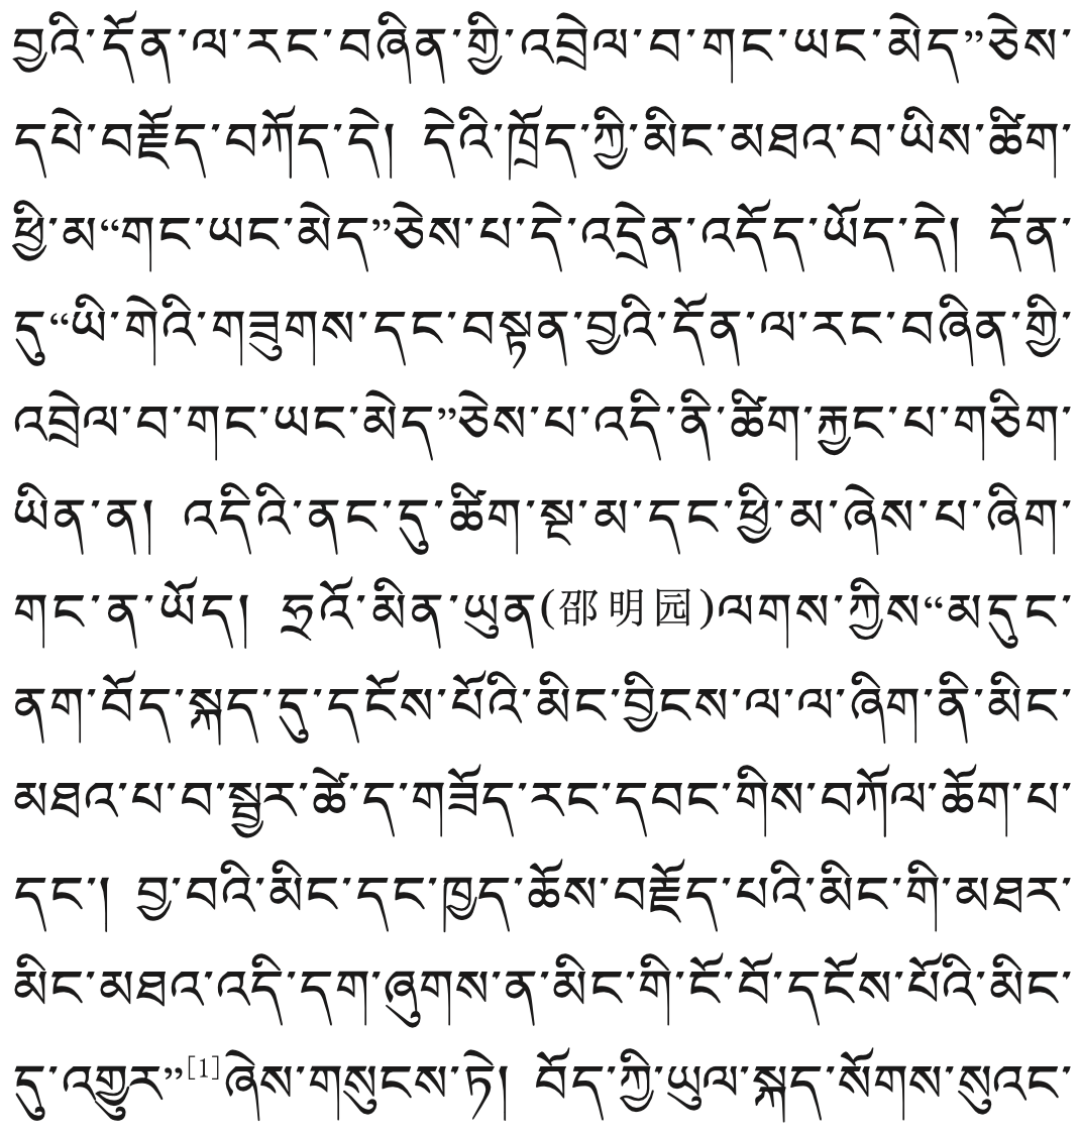 བྱའི་དོན་ལ་རང་བཞིན་གྱི་འབྲེལ་བ་གང་ཡང་མེད”ཅེས་
དཔེ་བརྗོད་བཀོད་དེ། དེའི་ཁྲོད་ཀྱི་མིང་མཐའ་བ་ཡིས་ཚིག་
ཕྱི་མ“གང་ཡང་མེད”ཅེས་པ་དེ་འདྲེན་འདོད་ཡོད་དེ། དོན་
དུ“ཡི་གེའི་གཟུགས་དང་བསྟན་བྱའི་དོན་ལ་རང་བཞིན་གྱི་
འབྲེལ་བ་གང་ཡང་མེད”ཅེས་པ་འདི་ནི་ཚིག་རྐྱང་པ་གཅིག་
ཡིན་ན། འདིའི་ནང་དུ་ཚིག་སྔ་མ་དང་ཕྱི་མ་ཞེས་པ་ཞིག་
གང་ན་ཡོད། ཧྲའོ་མིན་ཡུན(邵明园)ལགས་ཀྱིས“མདུང་
ནག་བོད་སྐད་དུ་དངོས་པོའི་མིང་བྱིངས་ལ་ལ་ཞིག་ནི་མིང་
མཐའ་པ་བ་སྦྱར་ཚེ་ད་གཟོད་རང་དབང་གིས་བཀོལ་ཆོག་པ་
དང་། བྱ་བའི་མིང་དང་ཁྱད་ཆོས་བརྗོད་པའི་མིང་གི་མཐར་
མིང་མཐའ་འདི་དག་ཞུགས་ན་མིང་གི་ངོ་བོ་དངོས་པོའི་མིང་
དུ་འགྱུར”[1]ཞེས་གསུངས་ཏེ། བོད་ཀྱི་ཡུལ་སྐད་སོགས་སུའང་